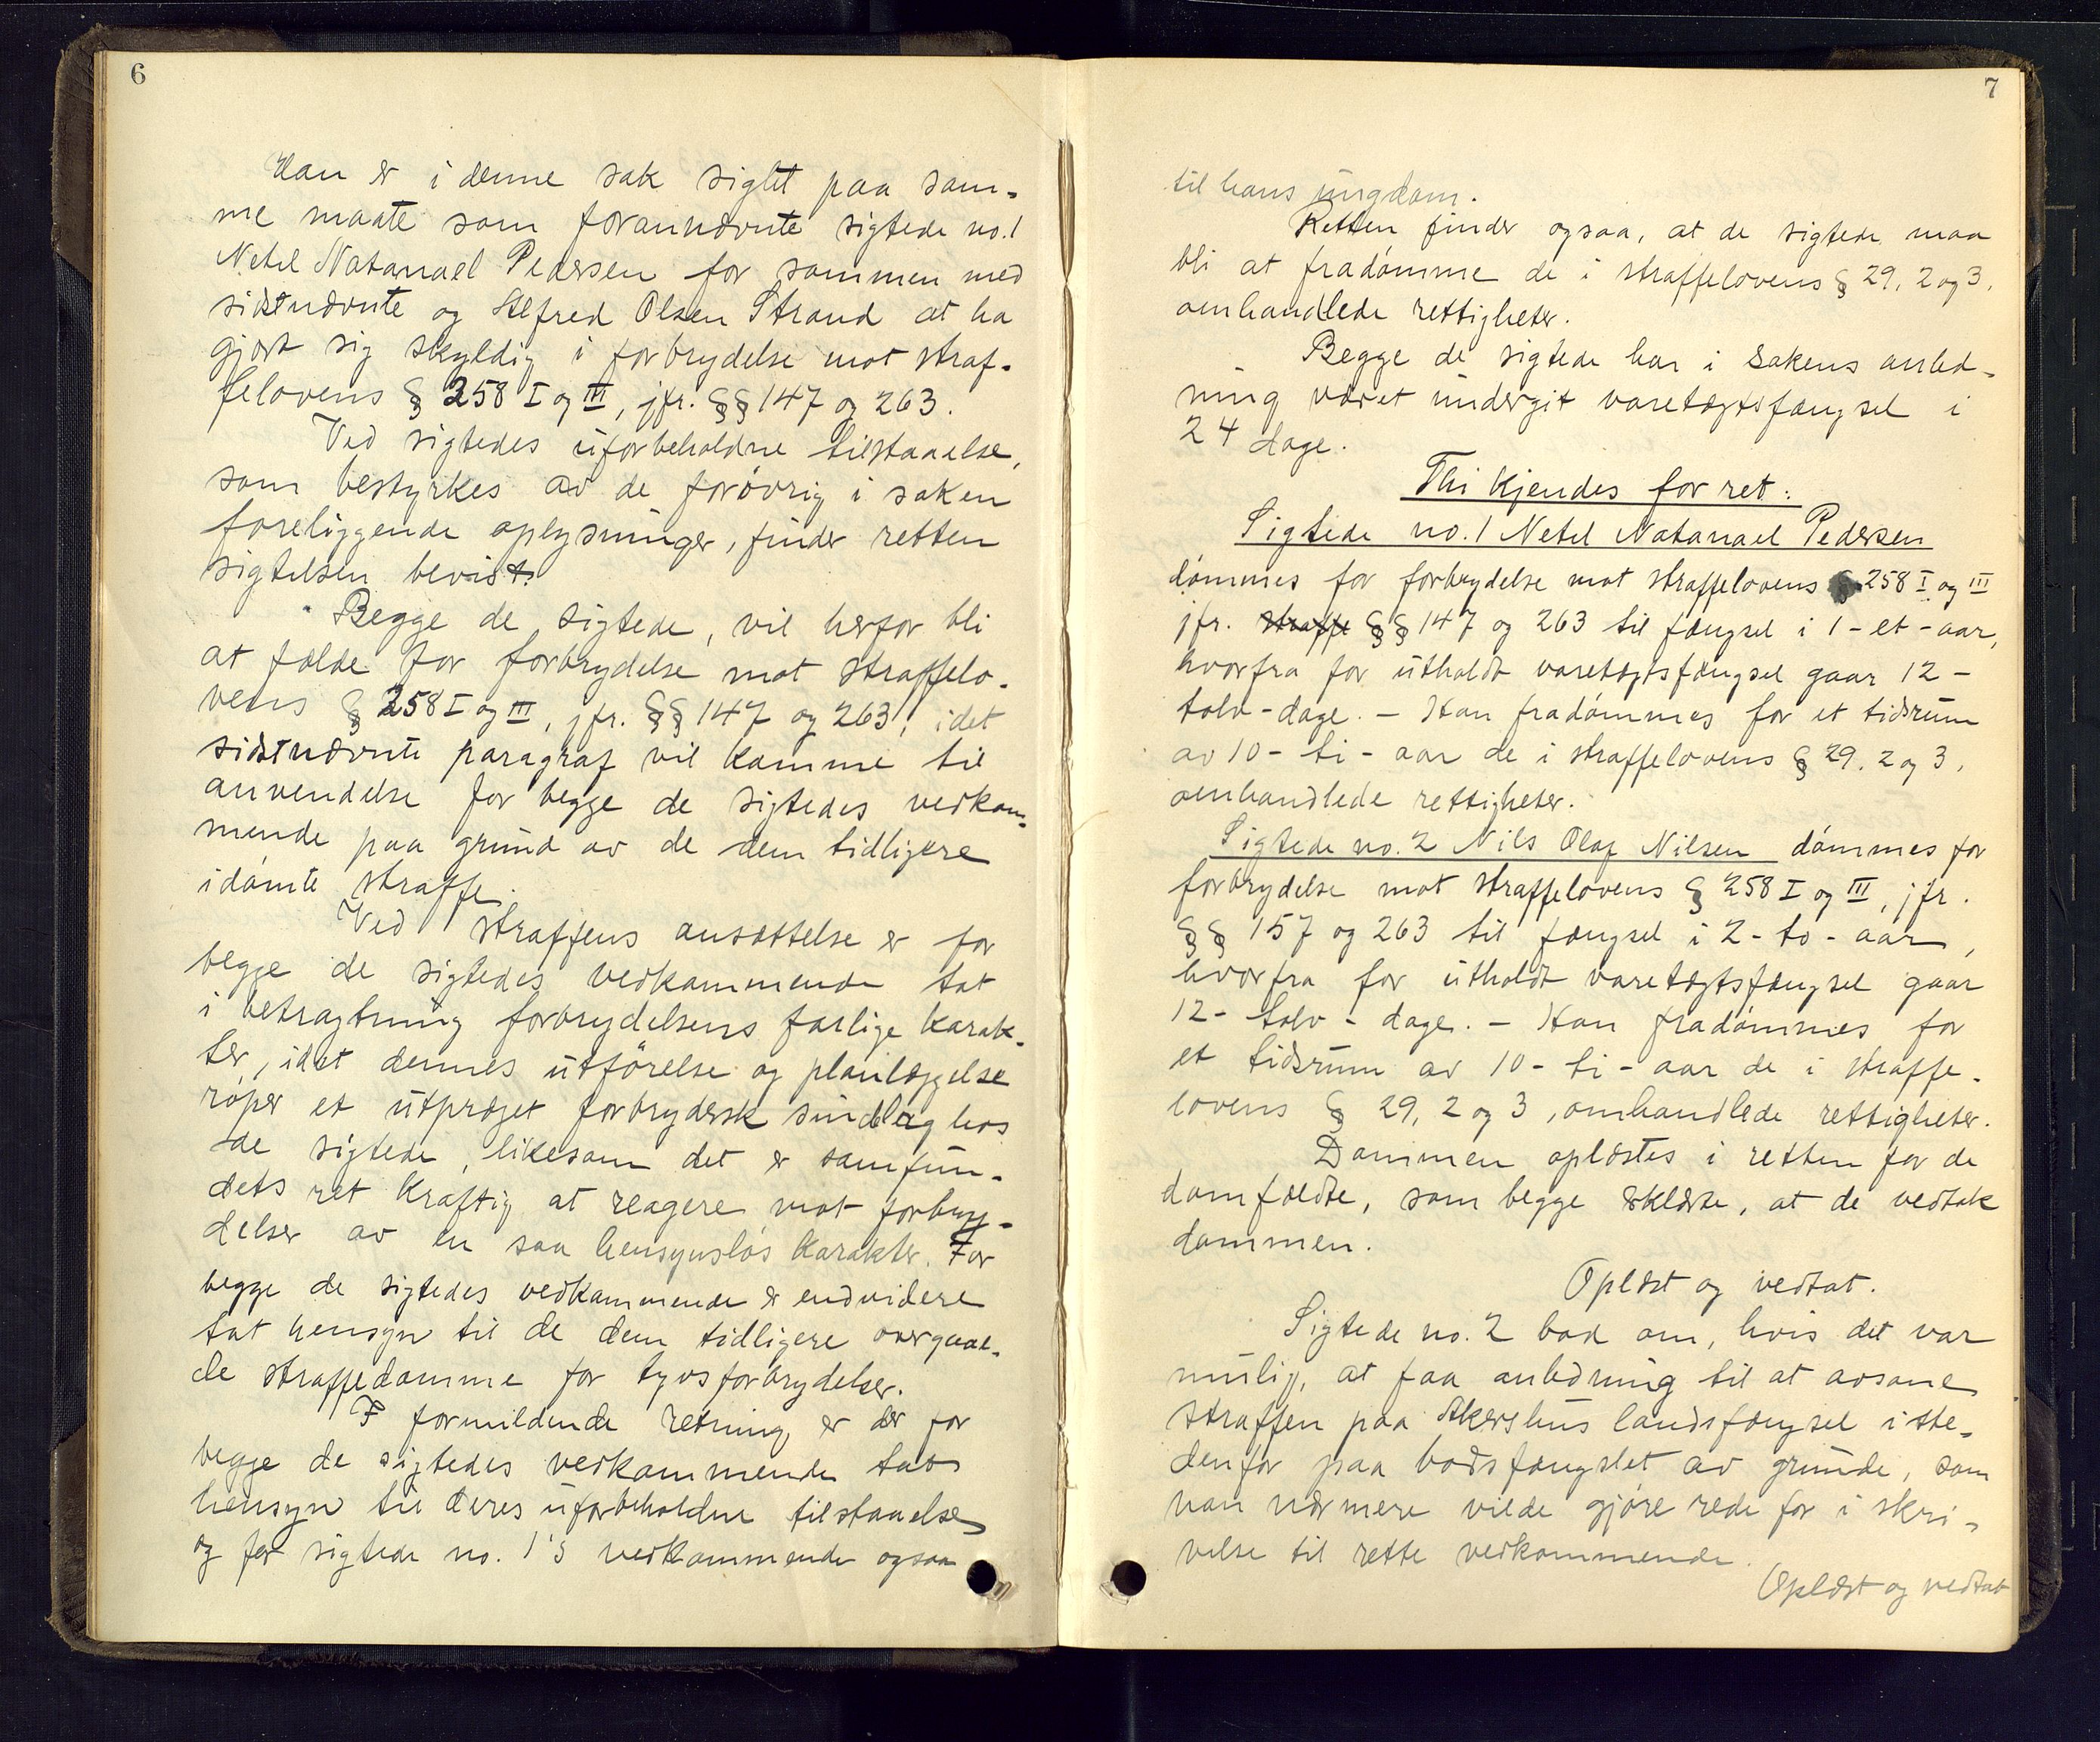 6
Han er i denne sak sigtet paa sam-
me maate som forannævnte sigtede no. 1
Netel Natanael Pedersen for sammen med
sidstnævnte og Alfred Olsen Strand at ha
gjort sig skyldig i forbrydelse mot straf-
felovens § 258 I og III, jfr. §§ 147 og 263.
Ved sigtedes uforbeholdne tilstaaelse,
som bestyrkes av de forøvrig i saken
foreliggende oplysninger, finder retten
sigtelsen bevist.
Begge de sigtede, vil herfor bli
at fælde for forbrydelse mot straffelo-
vens § 258 I og III, jfr. §§ 147 og 263, idet
sidstnævnte paragraf vil komme til
anvendelse for begge de sigtedes vedkom-
mende paa grund av de dem tidligere
idømte straffe.
Ved straffens ansættelse er for
begge de sigtedes vedkommende tat
i betragtning forbrydelsens farlige karak-
ter, idet dennes utförelse og planlæggelse
røper et utpræget forbrydersk sindelag hos
de sigtede, likesom det er samfun-
dets ret kraftig at reagere mot forbry-
delser av en saa hensynsløs karakter. For
begge de sigtedes vedkommende er endvidere
tat hensyn til de dem tidligere overgaae-
de straffedomme for tyvsforbrydelser.
I formildende retning er der for
begge de sigtedes vedkommende tat
hensyn til deres uforbeholdne tilstaaelse
og for sigtede no. 1's vedkommende ogsaa
7
til hans ungdom.
Retten finder ogsaa, at de sigtede maa
bli at fradømme de i straffelovens § 29, 2 og 3,
omhandlede rettigheter.
Begge de sigtede har i sakens anled-
ning været undergit varetægtsfængsel i
24 dage.
Thi kjendes for ret:
Sigtede no. 1 Netel Natanael Pedersen
dømmes for forbrydelse mot straffelovens § 258 I og III
jfr. straffe §§ 147 og 263 til fængsel i 1 - et - aar,
hvorfra for utholdt varetægtsfængsel gaar 12 -
tolv - dage. - Han fradømmes for et tidsrum
av 10 - ti - aar de i straffelovens § 29, 2 og 3,
omhandlede rettigheter.
Sigtede no. 2 Nils Olaf Nilsen dømmes for
forbrydelse mot straffelovens § 258 I og III, jfr.
§§ 157 og 263 til fængsel i 2 - to - aar,
hvorfra for utholdt varetægtsfængsel gaar
12 - tolv - dage. - Han fradømmes for
et tidsrum av 10 - ti - aar de i straffe-
lovens § 29, 2 og 3, omhandlede rettigheter.
Dommen oplæstes i retten for de
domfældte, som begge erklærte, at de vedtok
dommen.
Oplæst og vedtat.
Sigtede no. 2 bad om, hvis det var
mulig, at faa anledning til at avsone
straffen paa Akershus landsfængsel iste-
denfor paa bodsfængslet av grunde, som
han nærmere vilde gjøre rede for i skri-
velse til rette vedkommende.
Oplæst og vedtat